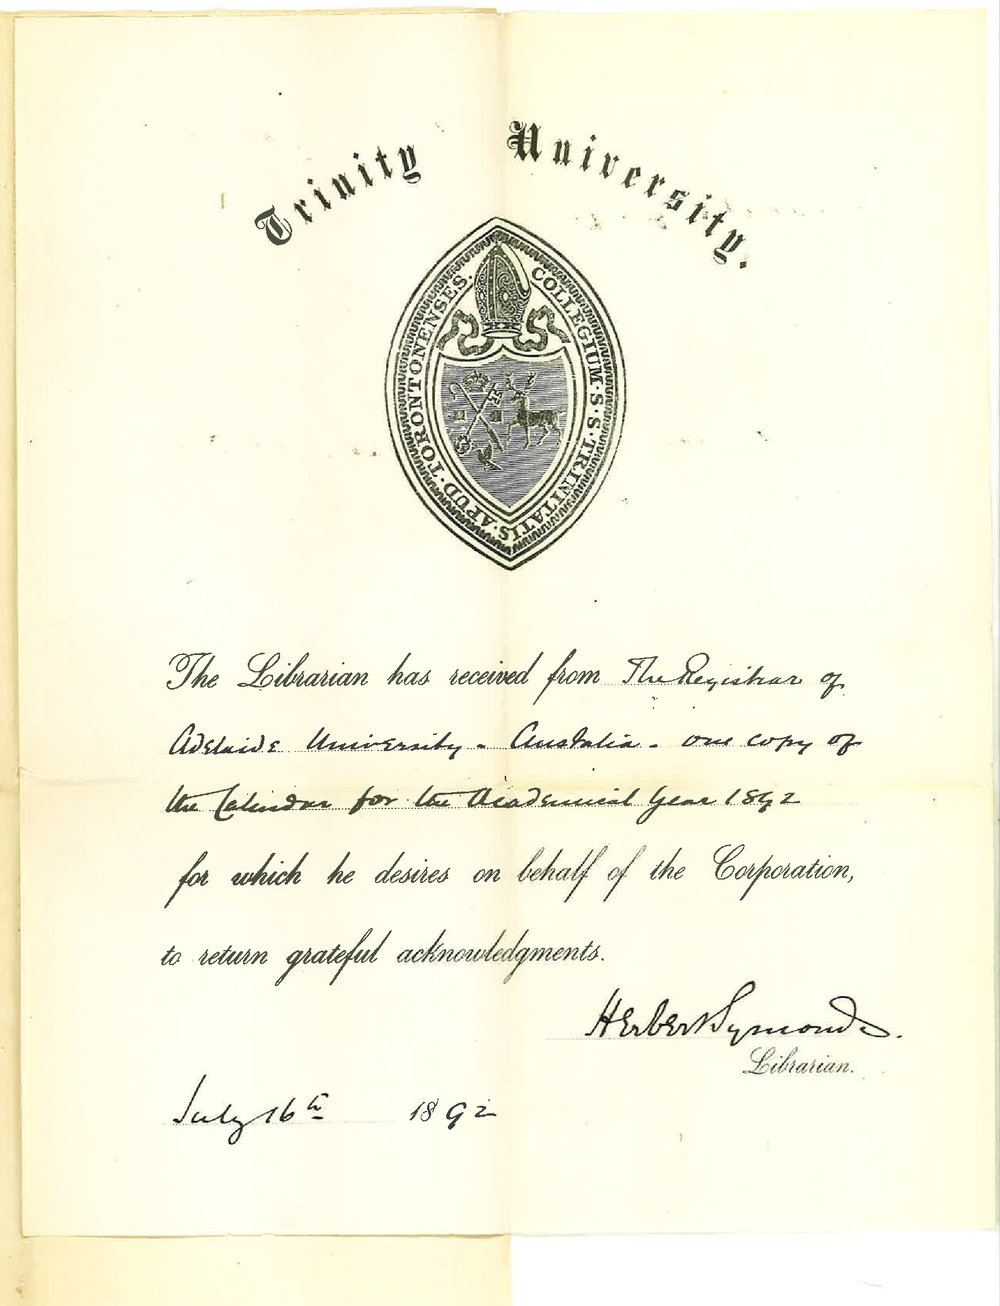 Trinity University.
COLLEGIUM·S·S·TRINITATIS·APUD·TORONTONENSES.
The Librarian has received from The Registrar of
Adelaide University - Australia - one copy of
the Calendar for the Academical Year 1892
for which he desires on behalf of the Corporation,
to return grateful acknowledgments.
Herbert Symonds.
Librarian.
July 16th 1892